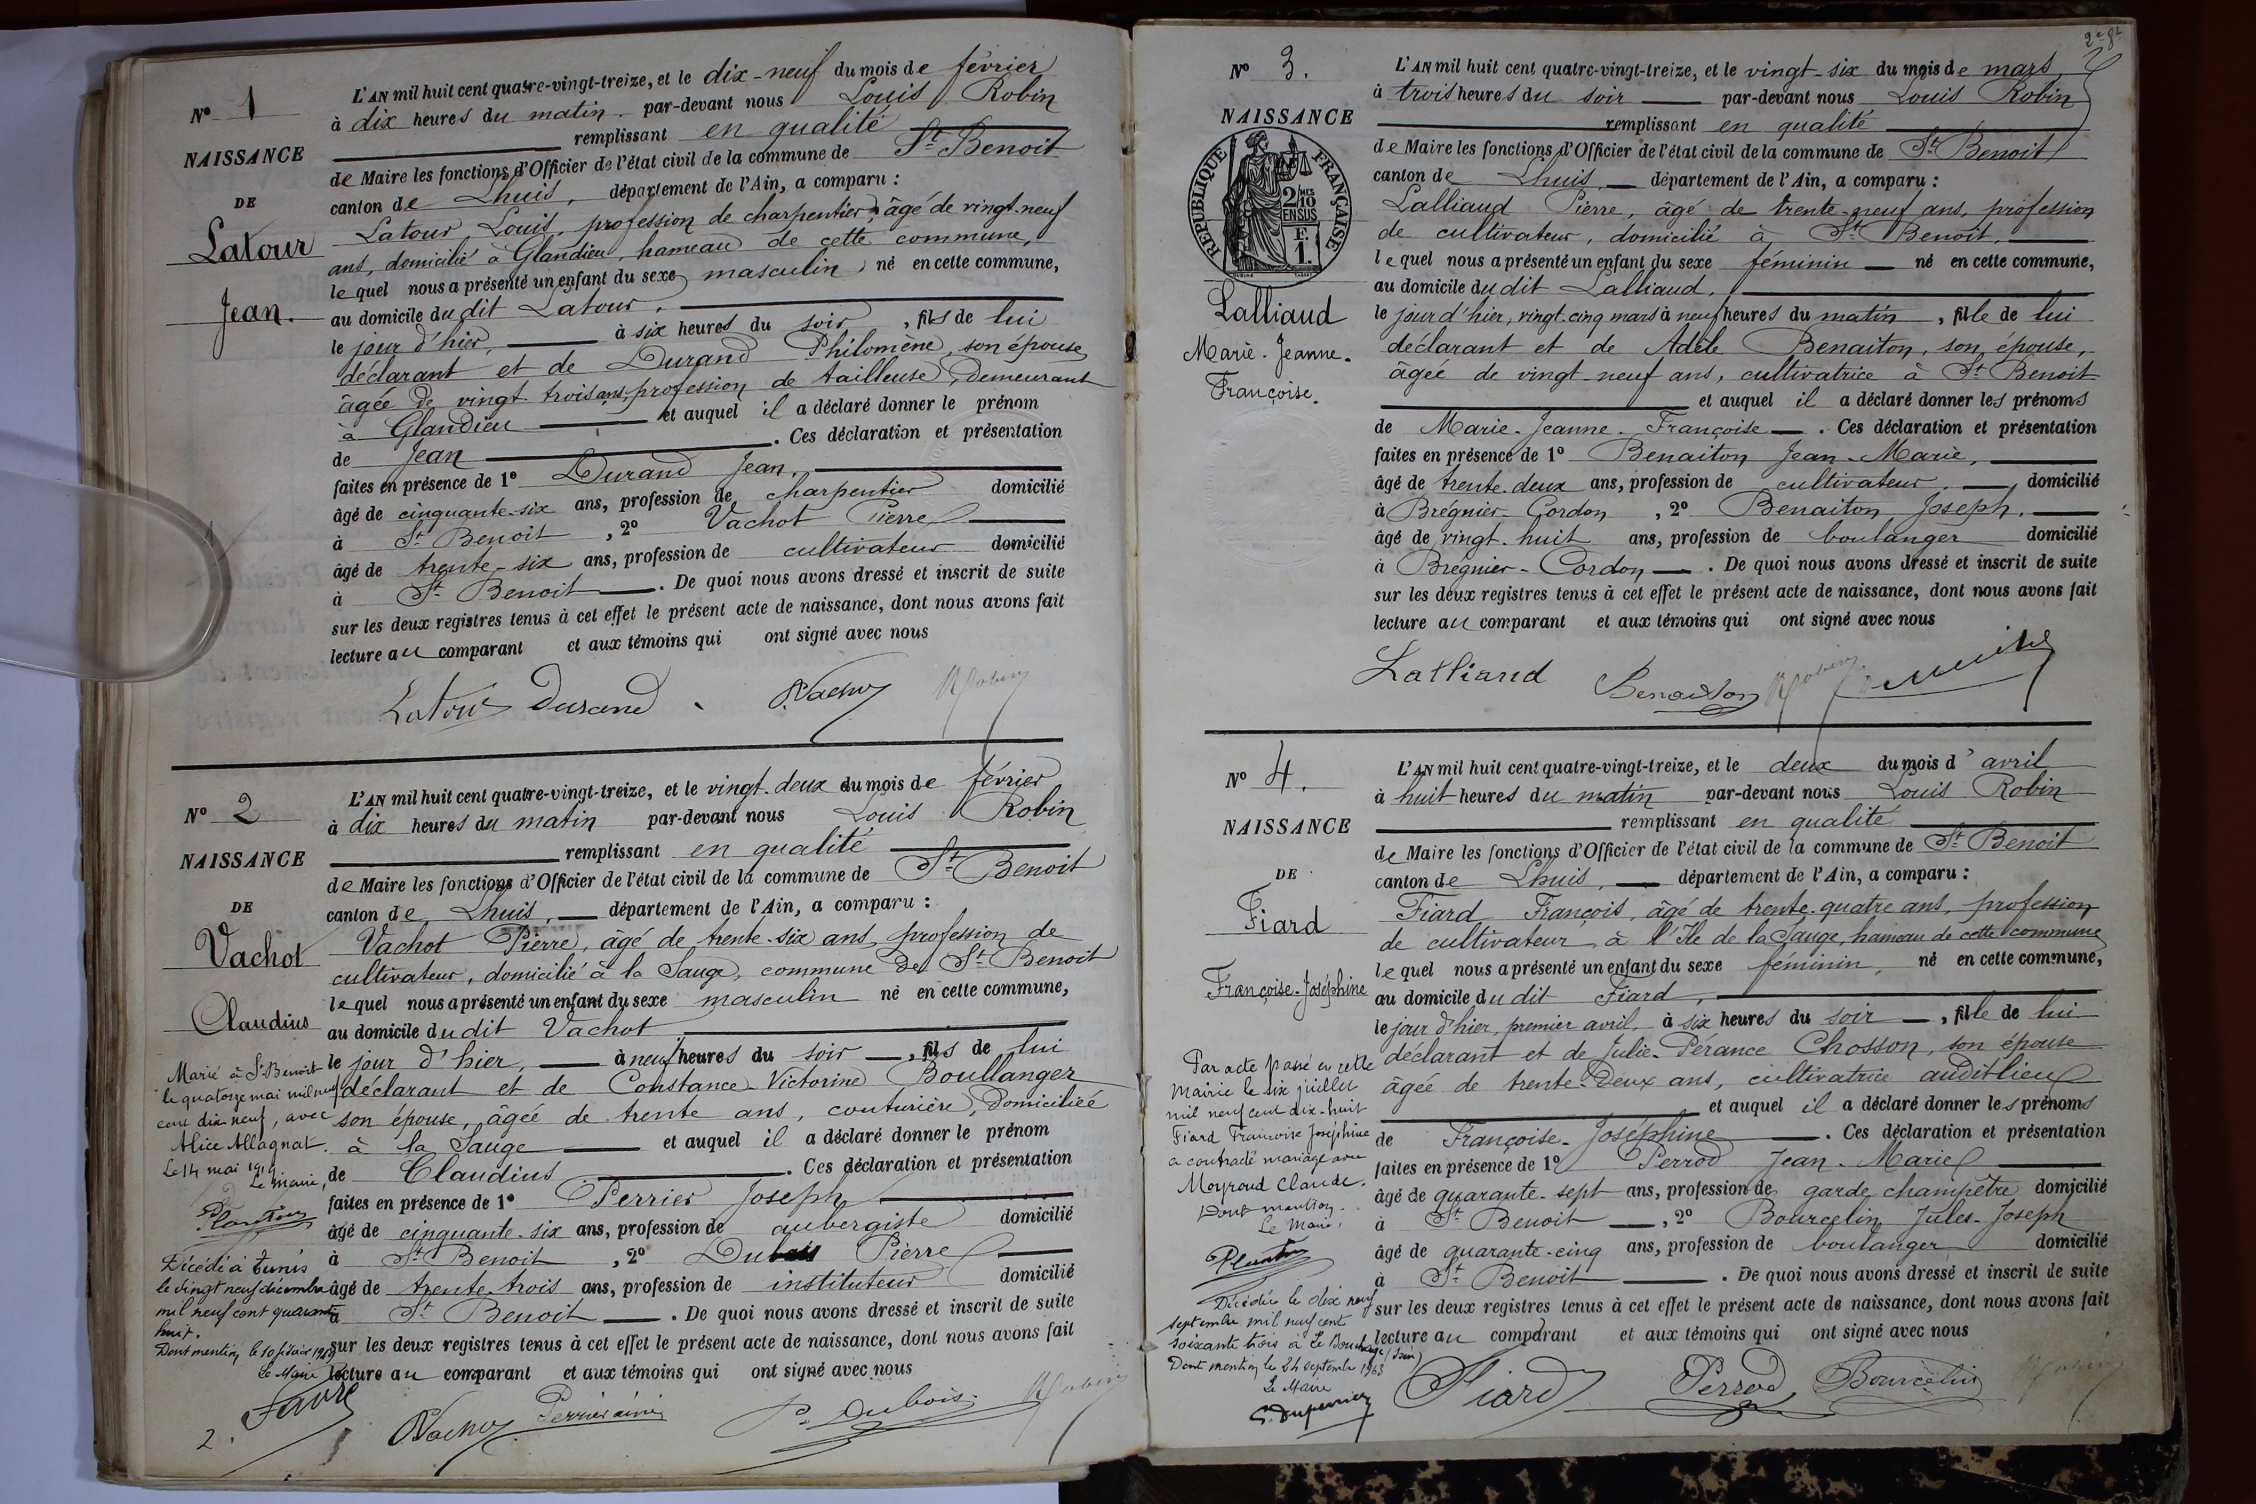 N° 1
NAISSANCE
DE
Latour
Jean.
L'AN mil huit cent quatre-vingt-treize, et le dix-neuf du mois de février
à dix heures du matin. par-devant nous Louis Robin
remplissant en qualité
de Maire les fonctions d'Officier de l'état civil de la commune de St Benoit
canton de Lhuis, département de l'Ain, a comparu :
Latour Louis, profession de charpentier, âgé de vingt-neuf
ans, domicilié à Glandieu, hameau de cette commune,
lequel nous a présenté un enfant du sexe masculin, né en cette commune,
au domicile dudit Latour.
le jour d'hier, à six heures du soir, fils de lui
déclarant et de Durand Philomène, son épouse
âgée de vingt-trois ans, profession de tailleuse, demeurant
à Glandieu et auquel il a déclaré donner le prénom
de Jean. Ces déclaration et présentation
faites en présence de 1° Durand Jean,
âgé de cinquante-six ans, profession de charpentier domicilié
à St Benoit, 2° Vachot Pierre
âgé de trente-six ans, profession de cultivateur domicilié
à St Benoit. De quoi nous avons dressé et inscrit de suite
sur les deux registres tenus à cet effet le présent acte de naissance, dont nous avons fait
lecture au comparant et aux témoins qui ont signé avec nous
Latour Durand P. Vachot Robin
N° 2
NAISSANCE
DE
Vachot
Claudius
L'AN mil huit cent quatre-vingt-treize, et le vingt-deux du mois de février
à dix heures du matin par-devant nous Louis Robin
remplissant en qualité
de Maire les fonctions d'Officier de l'état civil de la commune de St Benoit
canton de Lhuis, département de l'Ain, a comparu :
Vachot Pierre, âgé de trente-six ans, profession de
cultivateur, domicilié à la Sauge, commune de St Benoit
lequel nous a présenté un enfant du sexe masculin né en cette commune,
au domicile dudit Vachot
le jour d'hier, à neuf heures du soir, fils de lui
déclarant et de Constance Victorine Boullanger
son épouse, âgée de trente ans, couturière, domiciliée
à la Sauge et auquel il a déclaré donner le prénom
de Claudius. Ces déclaration et présentation
faites en présence de 1° Perrier Joseph
âgé de cinquante-six ans, profession de aubergiste domicilié
à St Benoit, 2° Dubois Pierre
âgé de trente-trois ans, profession de instituteur domicilié
à St Benoit. De quoi nous avons dressé et inscrit de suite
sur les deux registres tenus à cet effet le présent acte de naissance, dont nous avons fait
lecture au comparant et aux témoins qui ont signé avec nous
P. Vachot Perrier ainé P. Dubois Robin
Marié à St Benoit
le quatorze mai mil neuf
cent dix neuf, avec
Alice Allagnat.
Le 14 mai 1919
Le maire,
Décédé à Tunis
le vingt neuf décembre
mil neuf cent quarante
huit.
Dont mention le 10 février 1949
Le Maire
Favre
2.
2e ft
N° 3.
NAISSANCE
RÉPUBLIQUE FRANÇAISE
2/10 MES
EN SUS
F.
1.
Lalliaud
Marie-Jeanne-
Françoise.
L'AN mil huit cent quatre-vingt-treize, et le vingt-six du mois de mars
à trois heures du soir par-devant nous Louis Robin
remplissant en qualité
de Maire les fonctions d'Officier de l'état civil de la commune de St Benoit
canton de Lhuis, département de l'Ain, a comparu :
Lalliaud Pierre, âgé de trente-neuf ans, profession
de cultivateur, domicilié à St Benoit,
lequel nous a présenté un enfant du sexe féminin né en cette commune,
au domicile dudit Lalliaud,
le jour d'hier, vingt-cinq mars à neuf heures du matin, fille de lui
déclarant et de Adèle Benaiton, son épouse,
âgée de vingt-neuf ans, cultivatrice à St Benoit
et auquel il a déclaré donner les prénoms
de Marie-Jeanne-Françoise. Ces déclaration et présentation
faites en présence de 1° Benaiton Jean-Marie,
âgé de trente-deux ans, profession de cultivateur, domicilié
à Brégnier-Cordon, 2° Benaiton Joseph.
âgé de vingt-huit ans, profession de boulanger domicilié
à Brégnier-Cordon. De quoi nous avons dressé et inscrit de suite
sur les deux registres tenus à cet effet le présent acte de naissance, dont nous avons fait
lecture au comparant et aux témoins qui ont signé avec nous
Lalliaud Benaiton Robin
N° 4.
NAISSANCE
DE
Fiard
Françoise-Joséphine
L'AN mil huit cent quatre-vingt-treize, et le deux du mois d'avril
à huit heures du matin par-devant nous Louis Robin
remplissant en qualité
de Maire les fonctions d'Officier de l'état civil de la commune de St Benoit
canton de Lhuis, département de l'Ain, a comparu :
Fiard François, âgé de trente-quatre ans, profession
de cultivateur à l'Ile de la Sauge, hameau de cette commune
lequel nous a présenté un enfant du sexe féminin, né en cette commune,
au domicile dudit Fiard,
le jour d'hier, premier avril, à six heures du soir, fille de lui
déclarant et de Julie-Pérance Chosson, son épouse
âgée de trente-deux ans, cultivatrice audit lieu
et auquel il a déclaré donner les prénoms
de Françoise-Joséphine. Ces déclaration et présentation
faites en présence de 1° Perrod Jean-Marie
âgé de quarante-sept ans, profession de garde champêtre domicilié
à St Benoit, 2° Bourcelin Jules-Joseph
âgé de quarante-cinq ans, profession de boulanger domicilié
à St Benoit. De quoi nous avons dressé et inscrit de suite
sur les deux registres tenus à cet effet le présent acte de naissance, dont nous avons fait
lecture au comparant et aux témoins qui ont signé avec nous
Fiard Perrod Bourcelin Robin
Par acte passé en cette
mairie le six juillet
mil neuf cent dix-huit
Fiard Françoise Joséphine
a contracté mariage avec
Meyroud Claude.
Dont mention.
Le Maire,
Décédée le dix neuf
septembre mil neuf cent
soixante trois à Le Bouchage (Isère)
Dont mention le 24 septembre 1963
Le Maire